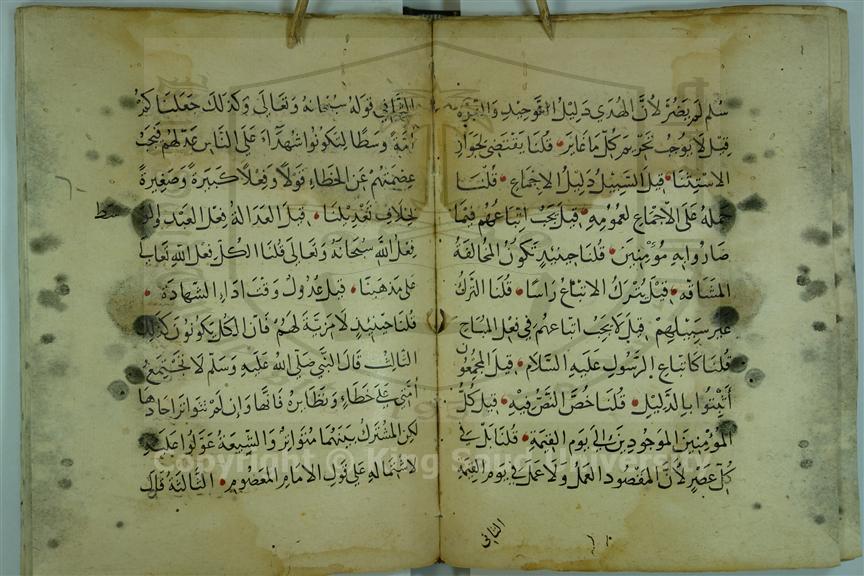 سلم لم يضر لأن الهدي دليل التوحيد والنبوة
قيل لا يوجب تحريم كل ما غاير قلنا يقتضي لجواز
الاستثناء قيل السبيل دليل الاجماع قلنا
حمله على الاجماع لعمومه قيل يجب اتباعهم فيما
صاروا به مؤمنين قلنا حينئذ تكون المخالفة
المشاقة قيل يترك الاتباع راسا قلنا الترك
غير سبيلهم قيل لا يجب اتباعهم في فعل المباح
قلنا كاتباع الرسول عليه السلام قيل المجمعون
أثبتوا بالدليل قلنا خص النص فيه قيل كل
المؤمنين الموجودين الى يوم القيمة قلنا بل في
كل عصر لأن المقصود العمل ولا عمل في يوم القيمة
الثاني
الثاني في قوله سبحانه وتعالى وكذلك جعلناكم
أمة وسطا لتكونوا شهداء على الناس عدلهم فيجب
عصمتهم عن الخطاء قولا وفعلا كبيرة وصغيرة
بخلاف تعديلنا قيل العدالة فعل العبد والوسط
فعل الله سبحانه وتعالى قلنا الكل فعل الله تعالى
على مذهبنا قيل عدول وقت اداء الشهادة
قلنا حينئذ لا مزية لهم فان الكل يكونون كذلك
الثالث قال النبي صلى الله عليه وسلم لا تجتمع
أمتي على خطاء ونظايره فانها وان لم تتواتر احادها
لكن المشترك بينهما متواتر والشيعة عولوا عليه
لاشتماله على قول الامام المعصوم الثالثة قال
Copyright © King Saud University